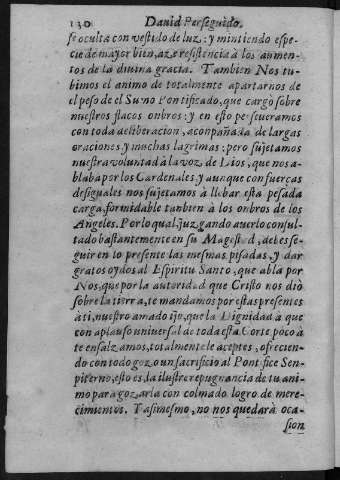 130 Dauid Perseguido.
se oculta con vestido de luz: y mintiendo espe-
cie de mayor bien, aze resistencia à los aumen-
tos de la diuina gracia. Tambien Nos tu-
bimos el animo de totalmente apartarnos de
el peso de el Sumo Pontificado, que cargò sobre
nuestros flacos onbros: y en esto perseueramos
con toda deliberacion, aconpañada de largas
oraciones y muchas lagrimas: pero sujetamos
nuestra voluntad à la voz de Dios, que nos a-
blaba por los Cardenales, y aunque con fuerças
desiguales nos sujetamos à llebar esta pesada
carga, formidable tanbien à los onbros de los
Angeles. Por lo qual, juzgando auerlo consul-
tado bastantemente en su Magestad, debes se-
guir en lo presente las mesmas pisadas, y dar
gratos oydos al Espiritu Santo, que abla por
Nos, que por la autoridad que Cristo nos diò
sobre la tierra, te mandamos por estas presentes
à ti, nuestro amado ijo, que la Dignidad à que
con aplauso uniuersal de toda esta Corte poco à
te ensalzamos, totalmente aceptes, ofrecien-
do con todo gozo un sacrificio al Pontifice Sen-
piterno, esto es, la ilustre repugnancia de tu ani-
mo para gozarla con colmado logro de mere-
cimientos. Y asimesmo, no nos quedarà oca-
sion